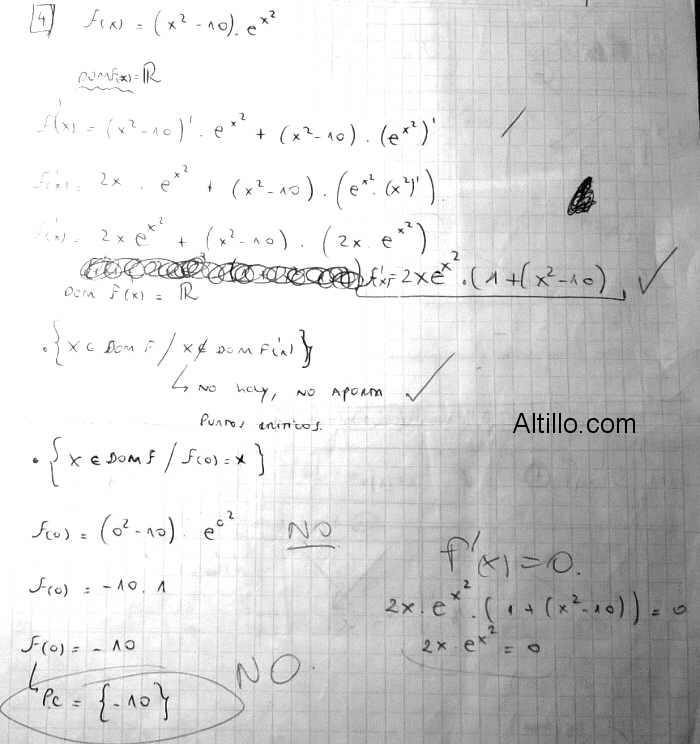 4 f(x) = (x² - 10) . e^x²
Dom f(x) = ℝ
f'(x) = (x² - 10)' . e^x² + (x² - 10) . (e^x²)'
f'(x) = 2x . e^x² + (x² - 10) . (e^x² . (x²)')
f'(x) = 2x e^x² + (x² - 10) . (2x . e^x²)
f'(x) = 2x e^x² . (1 + (x² - 10)
Dom f'(x) = ℝ
. {x ∈ Dom f / x ∉ Dom f'(x)}
↳ No hay, no aporta
Puntos criticos.
Altillo.com
. {x ∈ Dom f / f(0) = x}
f(0) = (0² - 10) . e^0² NO
f(0) = -10 . 1
f(0) = -10
↳ P.C = {-10} NO.
f'(x) = 0.
2x . e^x² . (1 + (x² - 10)) = 0
2x . e^x² = 0